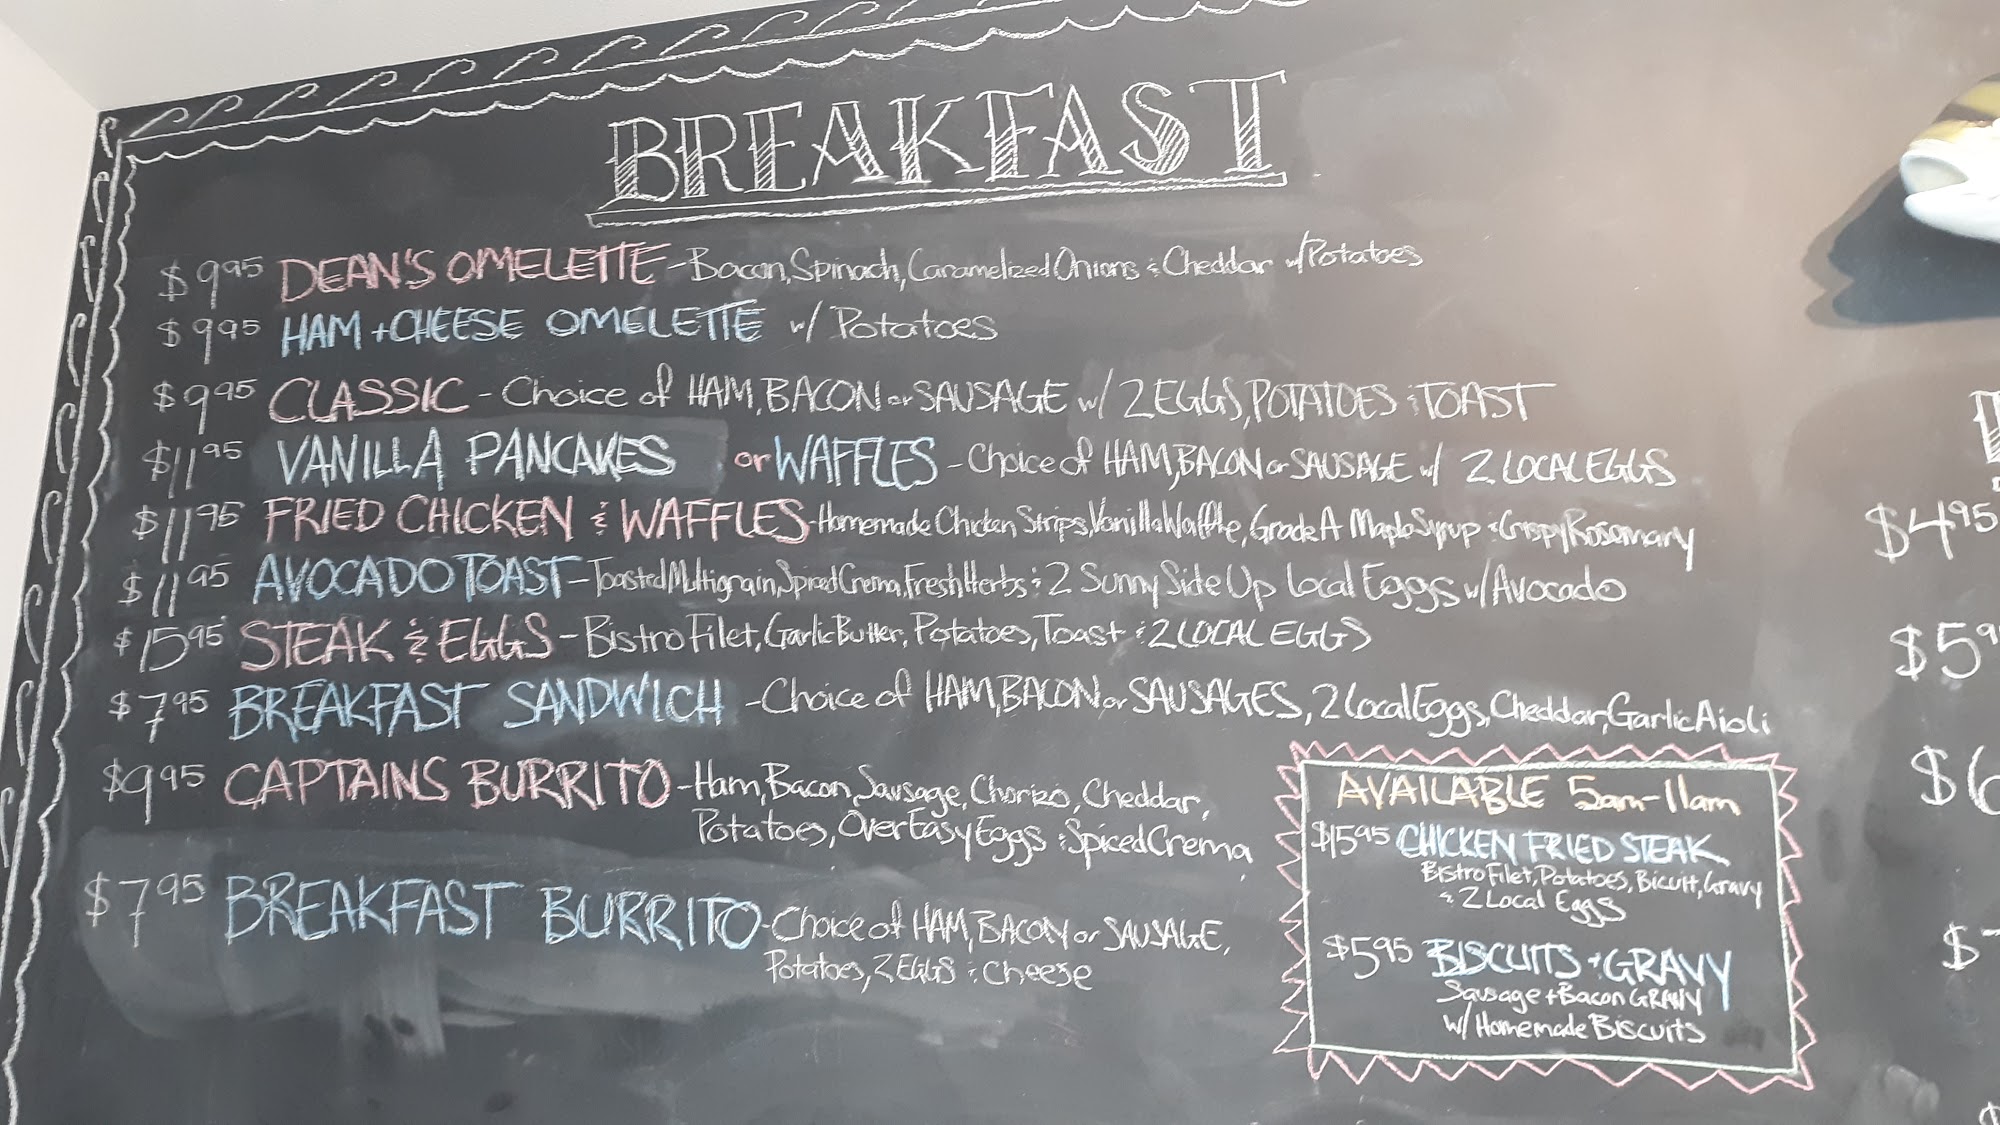 BREAKFAST
$9.95 DEAN'S OMELETTE - Bacon, Spinach, Caramelized Onions & Cheddar w/Potatoes
$9.95 HAM + CHEESE OMELETTE w/ Potatoes
$9.95 CLASSIC - Choice of HAM, BACON or SAUSAGE w/ 2 EGGS, POTATOES & TOAST
$11.95 VANILLA PANCAKES or WAFFLES - Choice of HAM, BACON or SAUSAGE w/ 2 LOCAL EGGS
$11.95 FRIED CHICKEN & WAFFLES - Homemade Chicken Strips, Vanilla Waffle, Grade A Maple Syrup & Crispy Rosemary
$11.95 AVOCADO TOAST - Toasted Multigrain, Spiced Crema, Fresh Herbs & 2 Sunny Side Up Local Eggs w/Avocado
$15.95 STEAK & EGGS - Bistro Filet, Garlic Butter, Potatoes, Toast & 2 LOCAL EGGS
$7.95 BREAKFAST SANDWICH - Choice of HAM, BACON or SAUSAGES, 2 Local Eggs, Cheddar, Garlic Aioli
$9.95 CAPTAINS BURRITO - Ham, Bacon, Sausage, Chorizo, Cheddar,
Potatoes, Over Easy Eggs & Spiced Crema
$7.95 BREAKFAST BURRITO - Choice of HAM, BACON or SAUSAGE,
Potatoes, 2 EGGS & Cheese
AVAILABLE 5am-11am
$15.95 CHICKEN FRIED STEAK
Bistro Filet, Potatoes, Biscuit, Gravy
& 2 Local Eggs
$5.95 BISCUITS + GRAVY
Sausage + Bacon GRAVY
w/ Homemade Biscuits
$4.95
$5.9
$6
$7
$